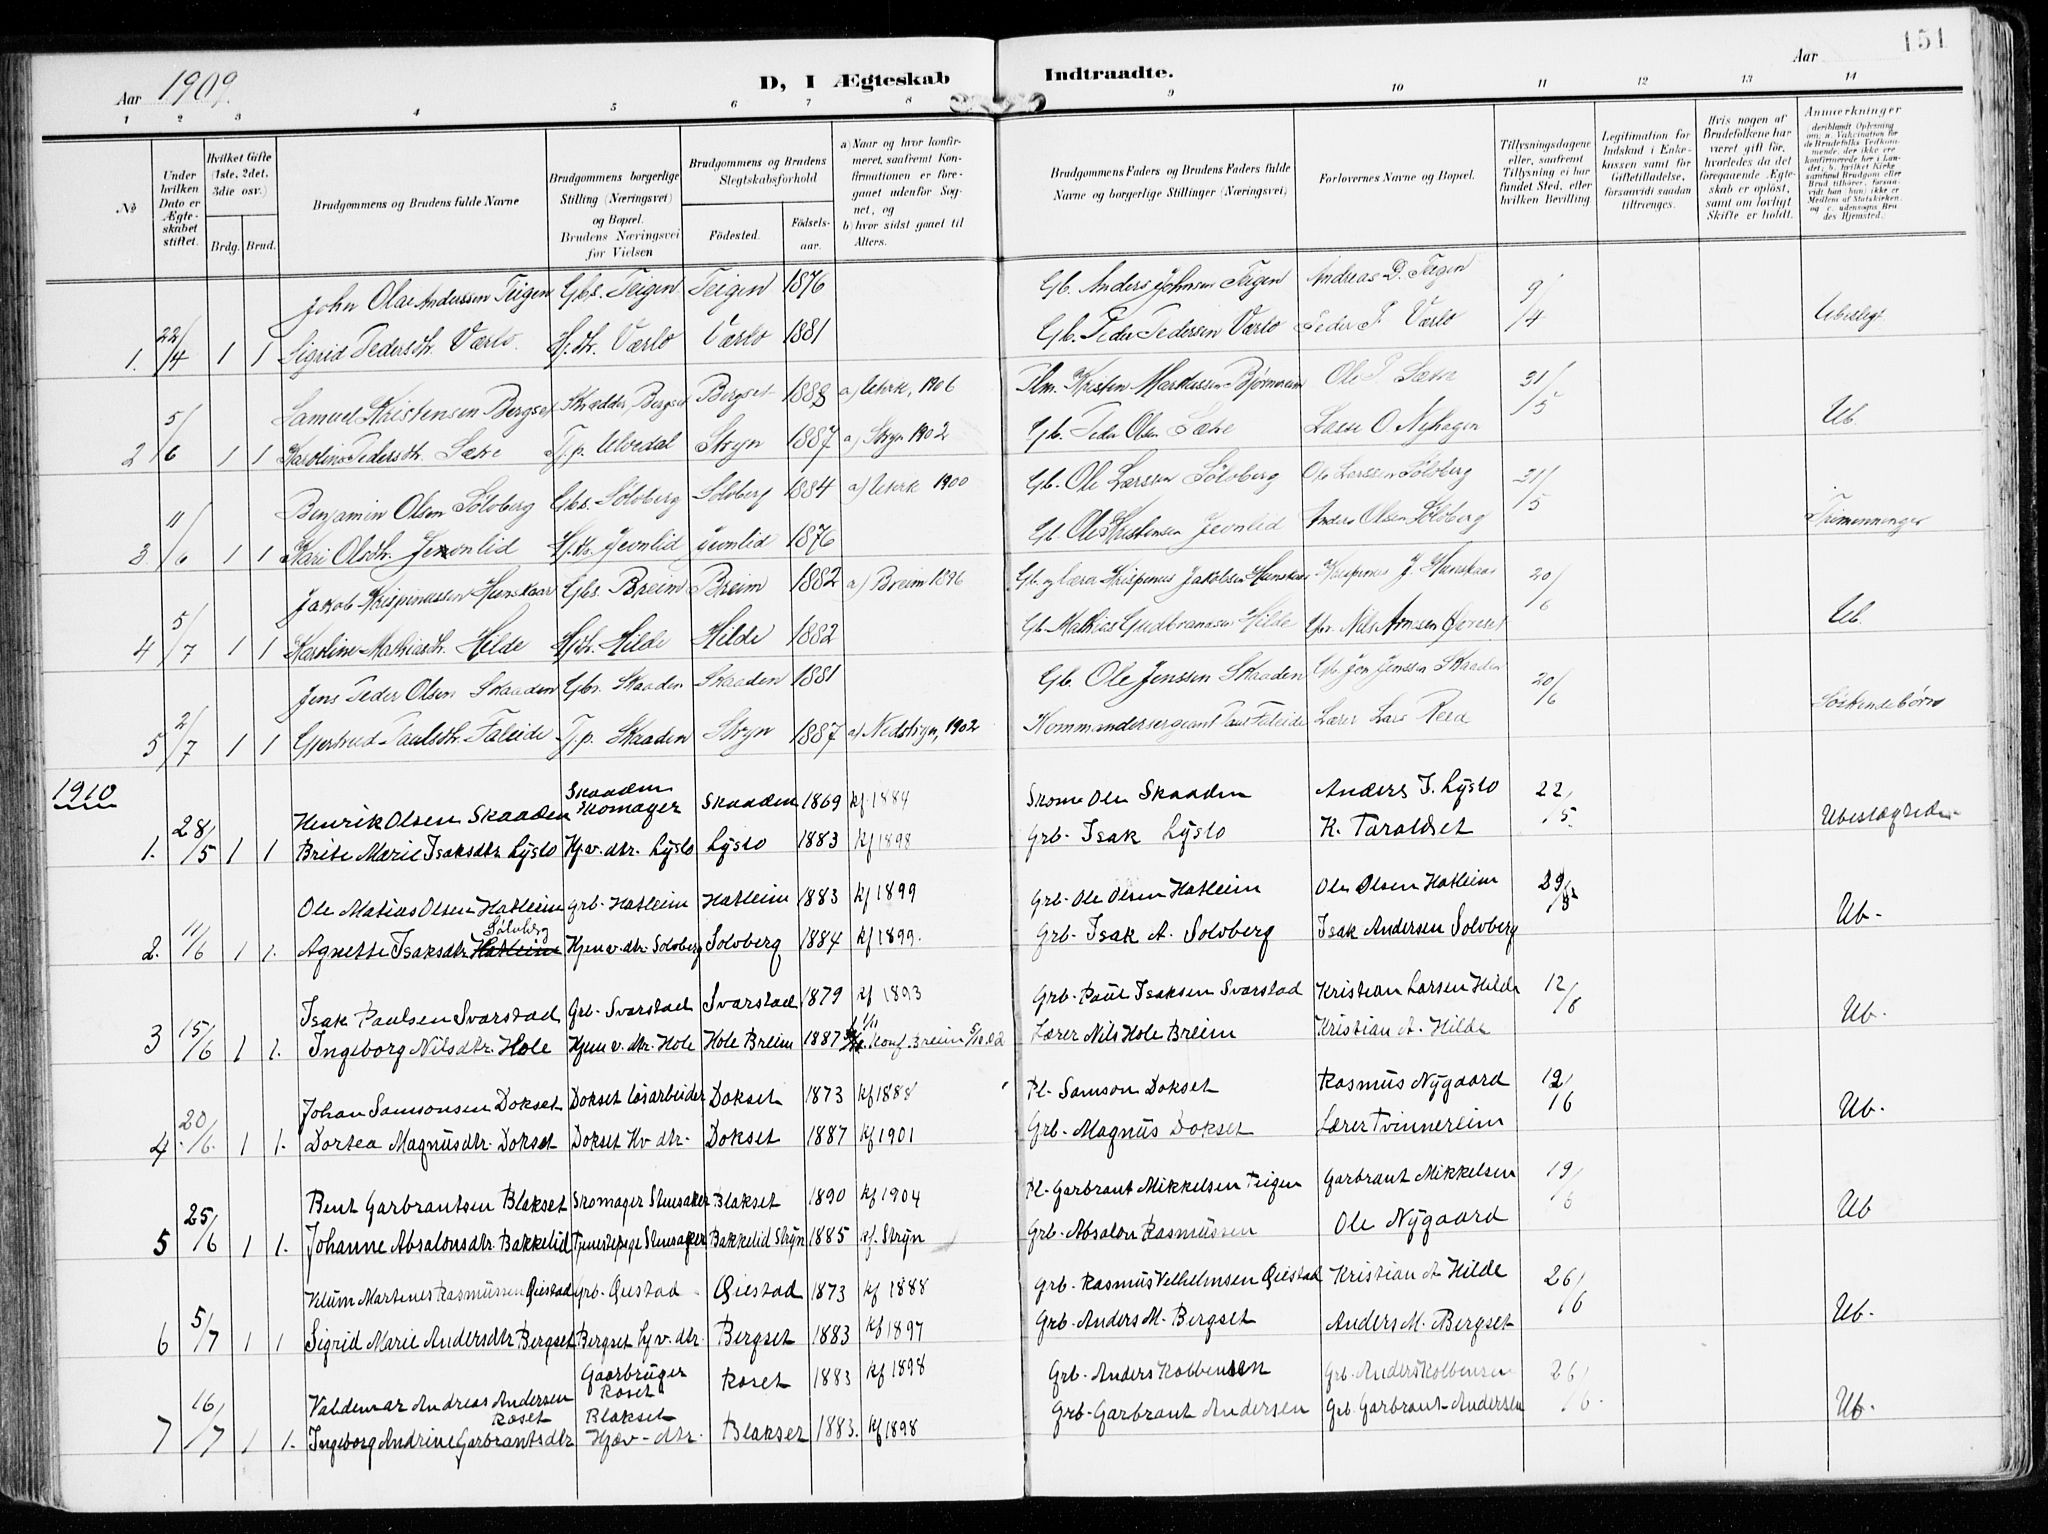 151
Aar 1909.
D, I Ægteskab Indtraadte.
Aar
1 2 3 4 5 6 7 8 9 10 11 12 13 14
No
Under hvilken Dato er Ægteskabet stiftet.
Hvilket Gifte (1ste, 2det, 3die osv.)
Brdg. Brud.
Brudgommens og Brudens fulde Navne
Brudgommens borgerlige Stilling (Næringsvei) og Bopæl. Brudens Næringsvei før Vielsen
Brudgommens og Brudens Slegtskabsforhold
Födested. Födselsaar.
a) Naar og hvor konfirmeret, saafremt Konfirmationen er foregaaet udenfor Sognet, og
b) hvor sidst gaaet til Alters.
Brudgommens Faders og Brudens Faders fulde Navne og borgerlige Stillinger (Næringsvei)
Forlovernes Navne og Bopæl.
Tillysningsdagene eller, saafremt Tillysning ei har fundet Sted, efter hvilken Bevilling
Legitimation for Indskud i Enkekassen samt for Giftetilladelse, forsaavidt saadan tiltrænges.
Hvis nogen af Brudefolkene har været gift før, hvorledes da det foregaaende Ægteskab er opløst, samt om lovligt Skifte er holdt.
Anmærkninger
John Olai Anderssen Teigen Gbs. Teigen Teigen 1876 Gb. Anders Johnsen Teigen Andreas D. Teigen 9/4
1. 22/4 1 1 Sigrid Pedersdtr. Værlo Hj.dt. Værlo Værlo 1881 Gb. Peder Pedersen Værlo Peder P. Værlo Ubeslegt
Samuel Kristensen Bergset Skrædder, Bergset Bergset 1888 a) Utvik, 1906 Plm. Kristen Markussen Bjørnereim Ole P. Sætre 31/5
2 5/6 1 1 Karoline Pedersdtr. Sætre Tj.p. Ulvedal Stryn 1887 a) Stryn 1902 Gb. Peder Olsen Sætre Lasse O Nyhagen Ub.
Benjamin Olsen Sölvberg Gbs. Sölvberg Solvberg 1884 a) Utvik 1900 Gb. Ole Larssen Sölvberg Ole Larssen Sölvberg 31/5
3 11/6 1 1 Kari Olsdtr. Jevnlid Hj.dt. Jevnlid Jevnlid 1876 Gb. Ole Kristensen Jevnlid Anders Olsen Sölvberg Tremenninger
Jakob Krispinussen Hunskaar Gbs. Breim Breim 1882 a) Breim 1896 Gb. og Lærer Krispinus Jakobsen Hunskaar Krispinus J. Hunskaar 20/6
4 5/7 1 1 Karoline Mathiasdtr. Hilde Hj.dt. Hilde Hilde 1882 Gb. Mathias Gudbrandsen Hilde Gbr. Nils Arnesen Ub.
Jens Peder Olsen Skaaden Gbr. Skaaden Skaaden 1881 Gb. Ole Jenssen Skaaden Gb. Jon Jenssen Skaaden 20/6
5 2/7 1 1 Gjertrud Paulsdtr. Faleide Tj.p. Skaaden Stryn 1887 a) Nedstryn, 1902 Kommandersergeant Paul Faleide Lærer Lars Reed Söskendebørn
1910
Henrik Olsen Skaaden Skaaden Skomager Skaaden 1869 kf. 1884 Skom. Ole Skaaden Anders I. Lyslo 22/5.
1. 28/5 1 1 Brite Marie Isaksdtr. Lyslo Hj.v. dtr. Lyslo Lyslo 1883 kf 1898 Grb. Isak Lyslo K. Taraldset Ubeslægtede
Ole Matias Olsen Hatleim Grb. Hatleim Hatleim 1883 kf 1899 Grb. Ole Olsen Hatleim Ole Olsen Hatleim 29/5
2. 11/6 1 1. Agnette Isaksdtr. Hatleim Sölvberg Hjem v. dtr Solvberg Solvberg 1884 kf 1899. Grb. Isak A. Solvberg Isak Andersen Solvberg Ub.
Isak Paulsen Svarstad Grb. Svarstad Svarstad 1879 kf 1893 Grb. Paul Isaksen Svarstad Kristian Larsen Hilde 12/6
3 15/6 1 1. Ingeborg Nilsdtr. Hole Hjem v. dtr. Hole Hole Breim 1887 konf. Breim 5/10.02 Lærer Nils Hole Breim Kristian A. Hilde Ub.
Johan Samsonsen Dokset Dokset løsarbeider Dokset 1873 kf 1888 Pl. Samson Dokset Rasmus Nygaard 12/6
4 20/6. 1 1. Dortea Magnusdtr. Dokset Dokset Hv dtr. Dokset 1887 kf 1901 Grb. Magnus Dokset Lærer Tvinnereim Ub.
Bent Garbrantsen Blakset Skomager Stuesaker Blakset 1890 kf 1904 Pl. Garbrant Mikkelsen Teigen Garbrant Mikkelsen 19/6
5 25/6 1 1. Johanne Absalonsdtr. Bakkelid Tjenestepige Stuesaker Bakkelid Stryn 1885 kf. Stryn Grb. Absalon Rasmussen Ole Nygaard Ub
Vilum Martinus Rasmussen Qiestad Grb. Qiestad Qiestad 1873 kf 1888 Grb. Rasmus Velhelmsen Qiestad Kristian A Hilde 26/6
6 5/7 1 1 Sigrid Marie Andersdtr Bergset Bergset hj v. dtr. Bergset 1883 kf 1897 Grb. Anders M. Bergset Anders M. Bergset Ub.
Valdemar Andreas Andersen Roset Gaarbruger Roset Roset 1883 kf 1898 Grb. Anders Kolbensen Grb. Anders Kolbensen 26/6.
7 16/7 1 1. Ingeborg Andrine Garbrantsdtr Blakset Hjæv. dtr. Blakset 1883. kf 1898 Grb. Garbrant Andersen Grb. Garbrant Andersen Ub.